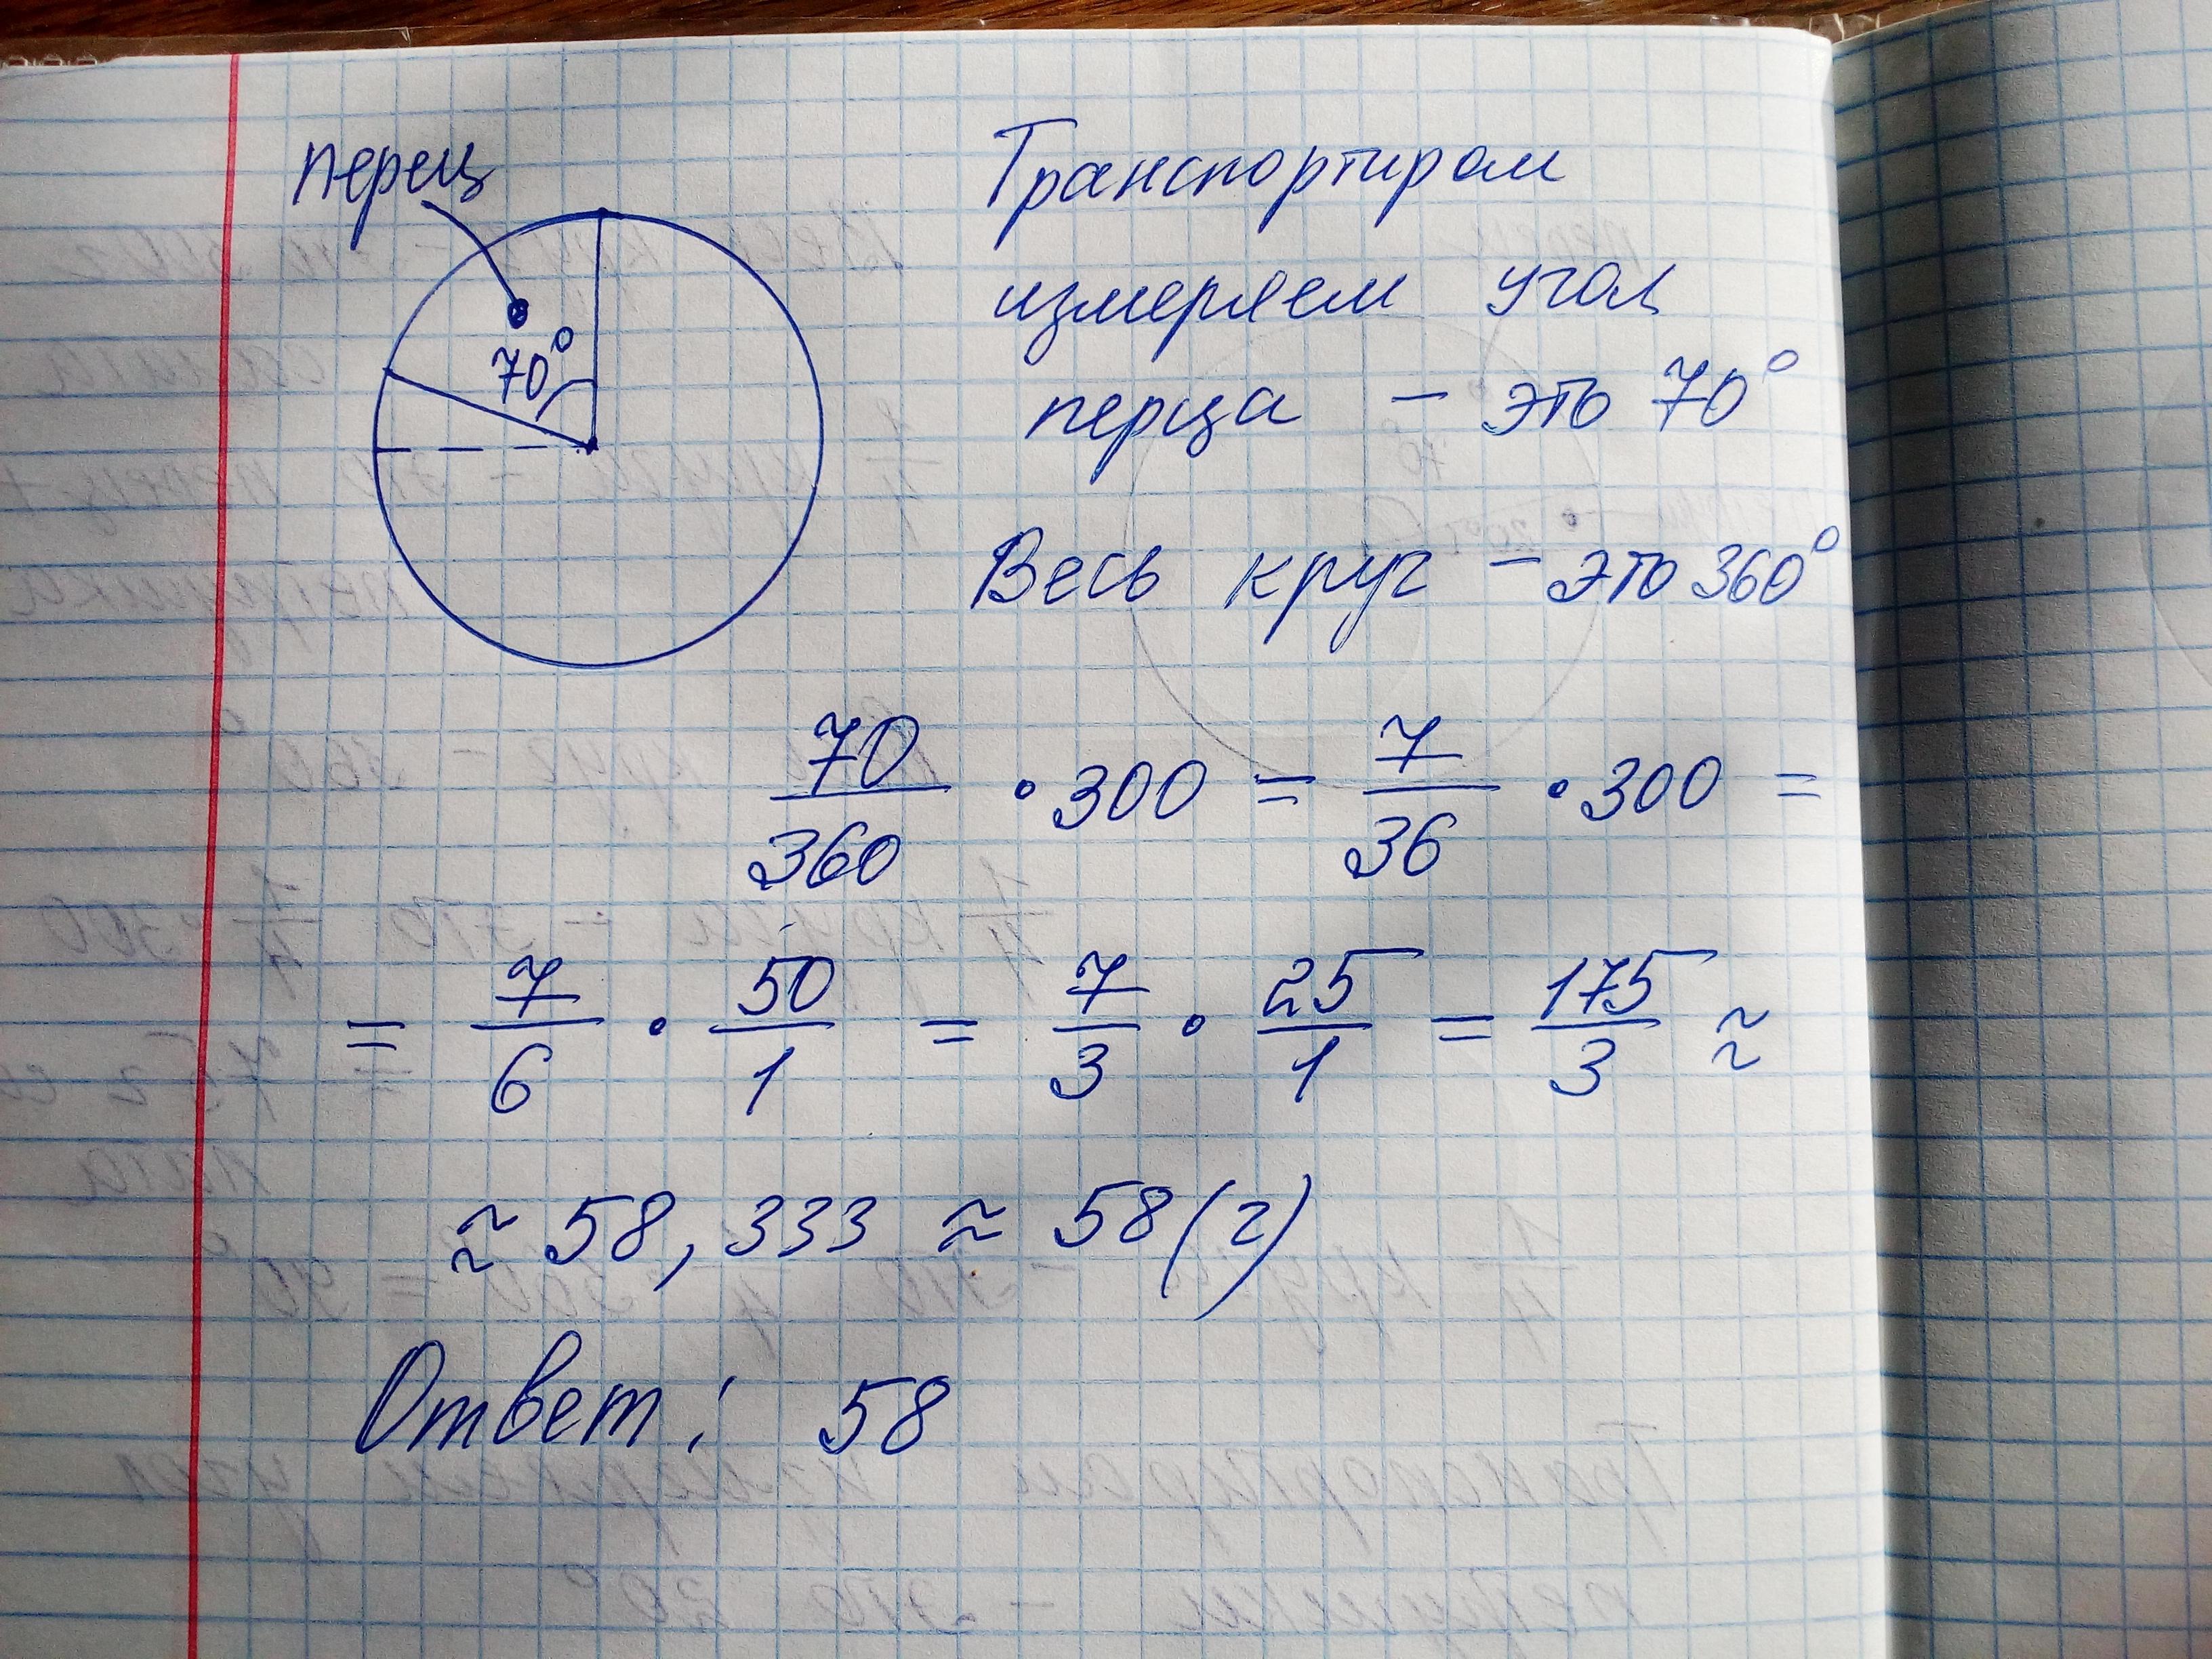 перец
70°
Транспортиром
измеряем угол
перца - это 70°
Весь круг - это 360°
70/360 · 300 = 7/36 · 300 =
= 7/6 · 50/1 = 7/3 · 25/1 = 175/3 ≈
≈ 58,333 ≈ 58 (г)
Ответ: 58